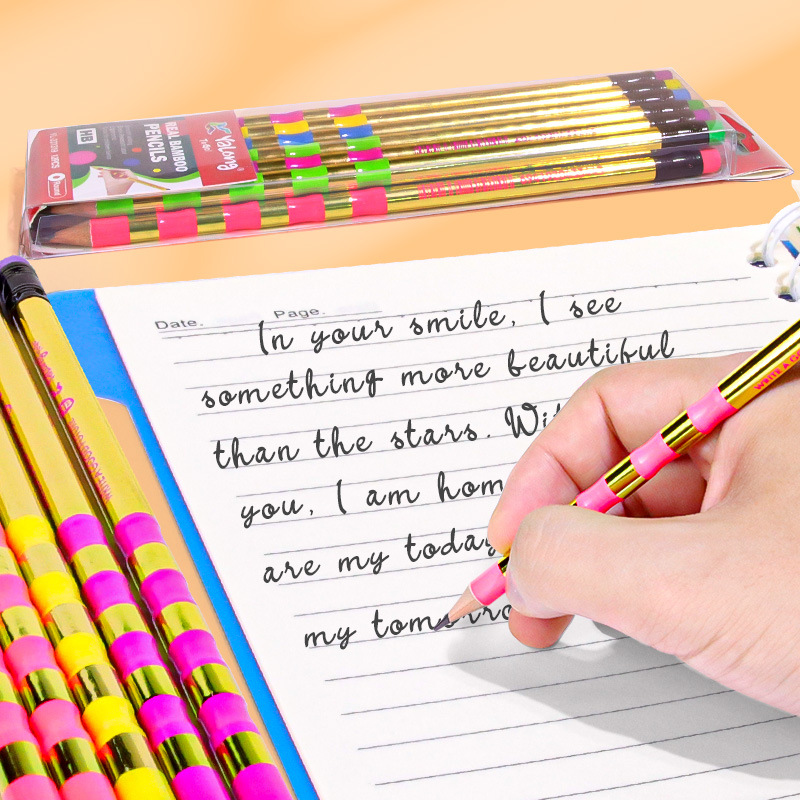 Yalong
REAL BAMBOO
PENCILS
HB
Date. Page.
In your smile, I see
something more beautiful
than the stars. Wit
you, I am hom
are my today
my tomorro
WRITE A G